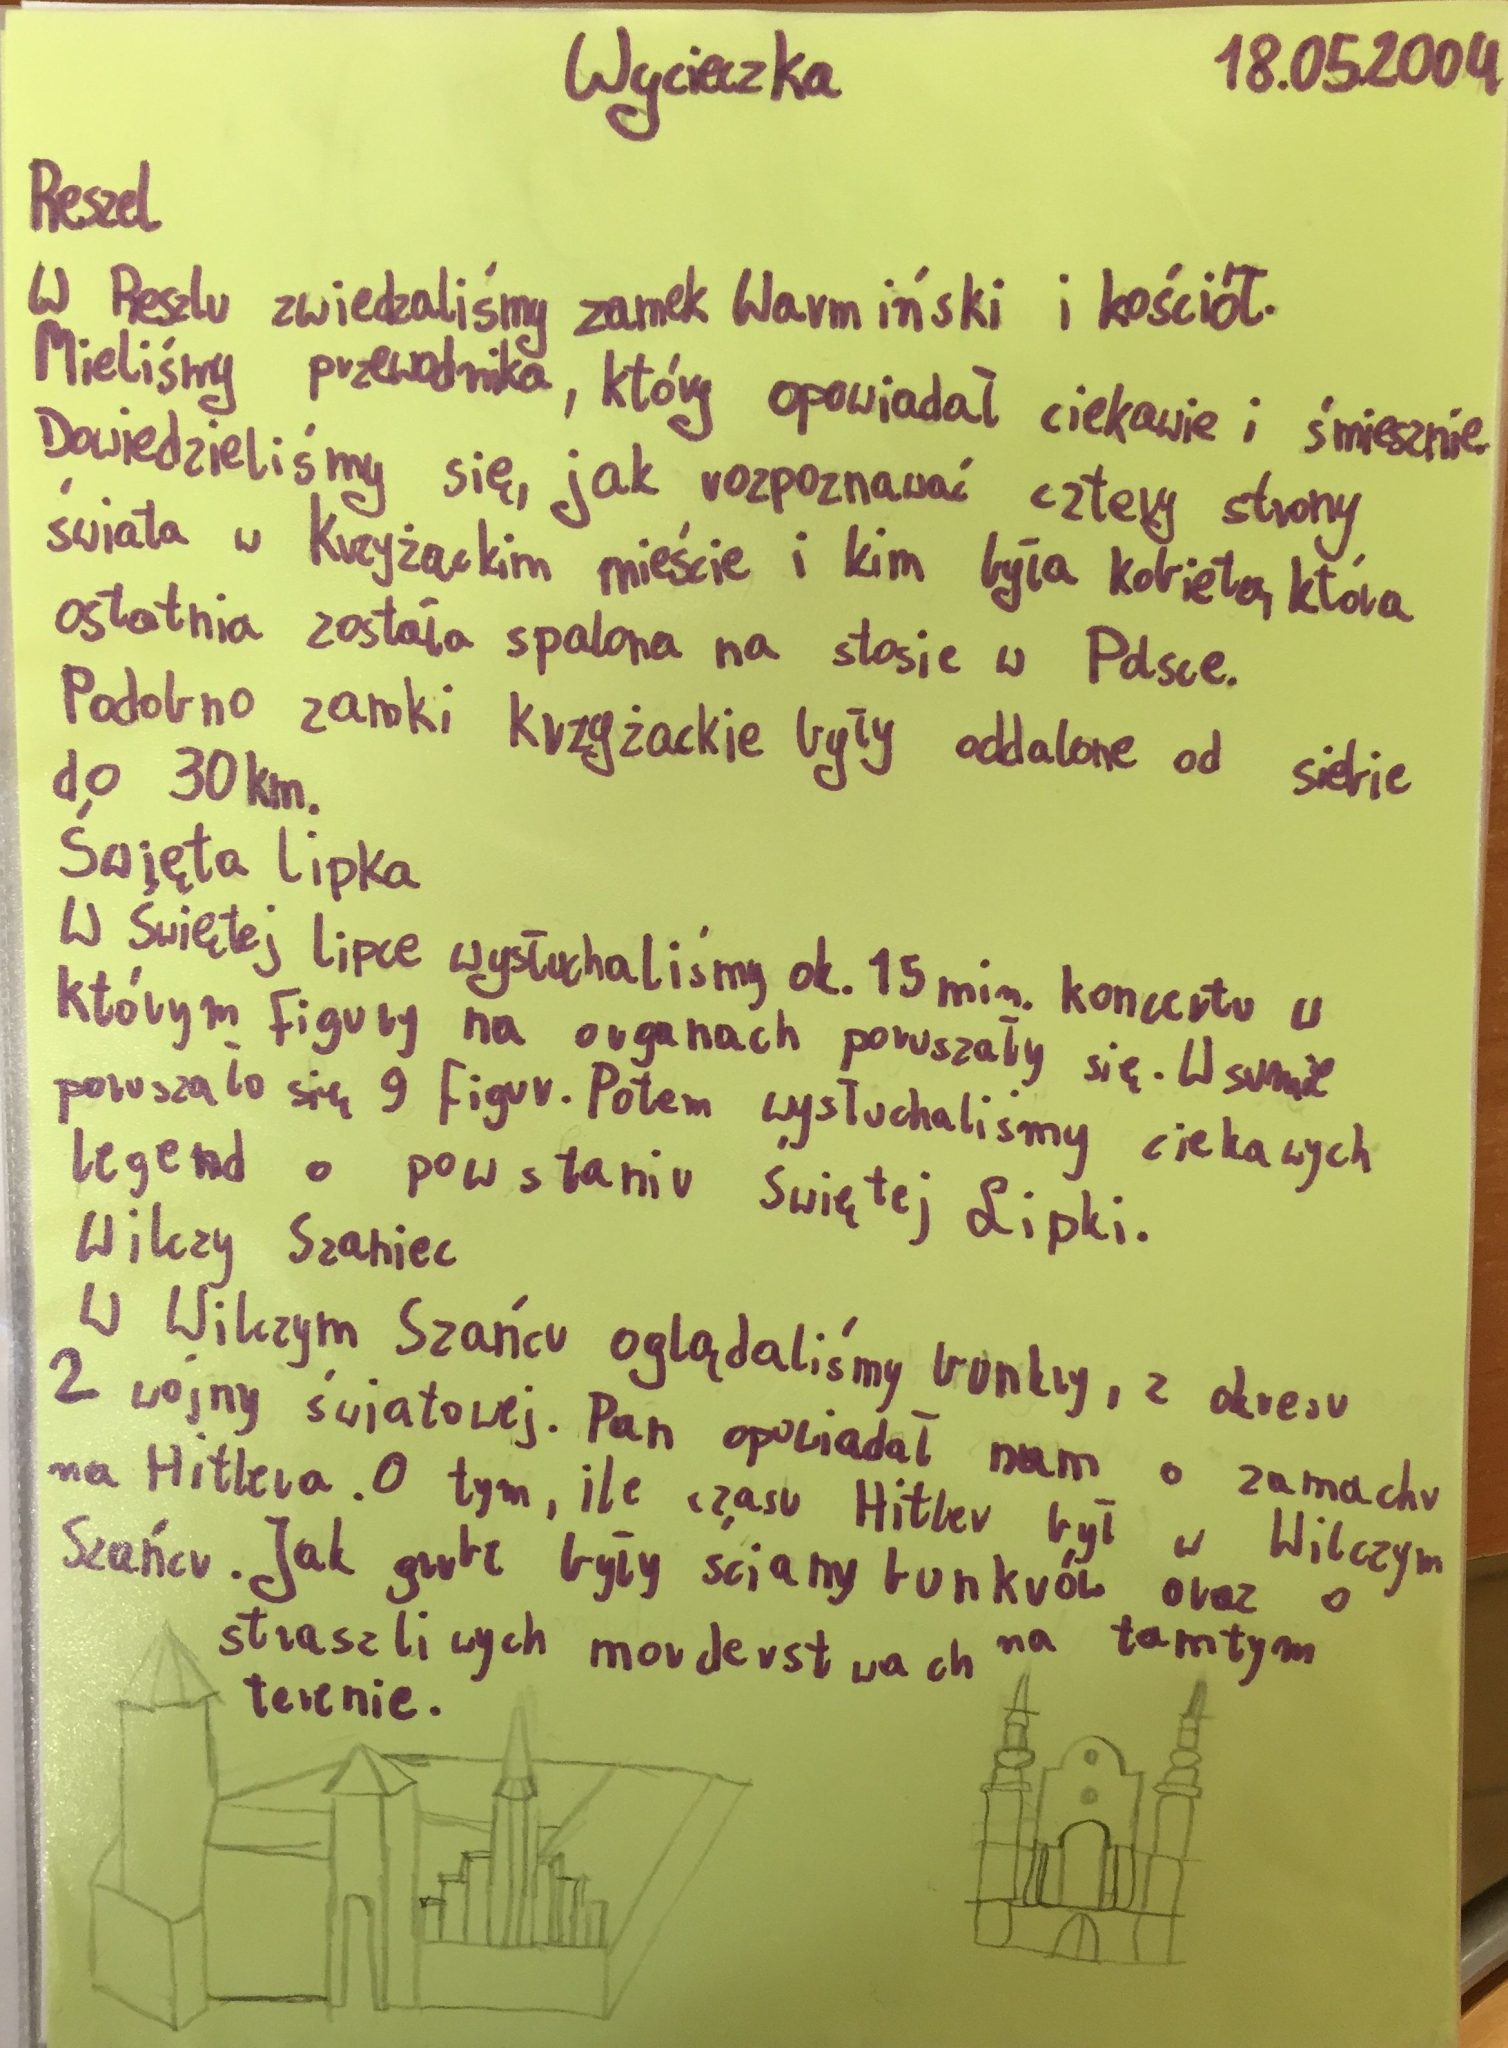 Wycieczka 18.05.2004
Reszel
W Reszlu zwiedzaliśmy zamek Warmiński i kościół.
Mieliśmy przewodnika, który opowiadał ciekawie i śmiesznie.
Dowiedzieliśmy się, jak rozpoznawać cztery strony
świata w Krzyżąckim mieście i kim była kobieta, która
ostatnia została spalona na stosie w Polsce.
Podobno zamki krzyżackie były oddalone od siebie
do 30 km.
Święta lipka
W Świętej lipce wysłuchaliśmy ok. 15 min. koncertu w
którym figury na organach poruszały się. W sumie
poruszało się 9 figur. Potem wysłuchaliśmy ciekawych
legend o powstaniu Świętej Lipki.
Wilczy Szaniec
W Wilczym Szańcu oglądaliśmy bunkry, z okresu
2 wojny światowej. Pan opowiadał nam o zamachu
na Hitlera. O tym, ile czasu Hitler był w Wilczym
Szańcu. Jak grube były ściany bunkrów oraz o
straszliwych morderstwach na tamtym
terenie.